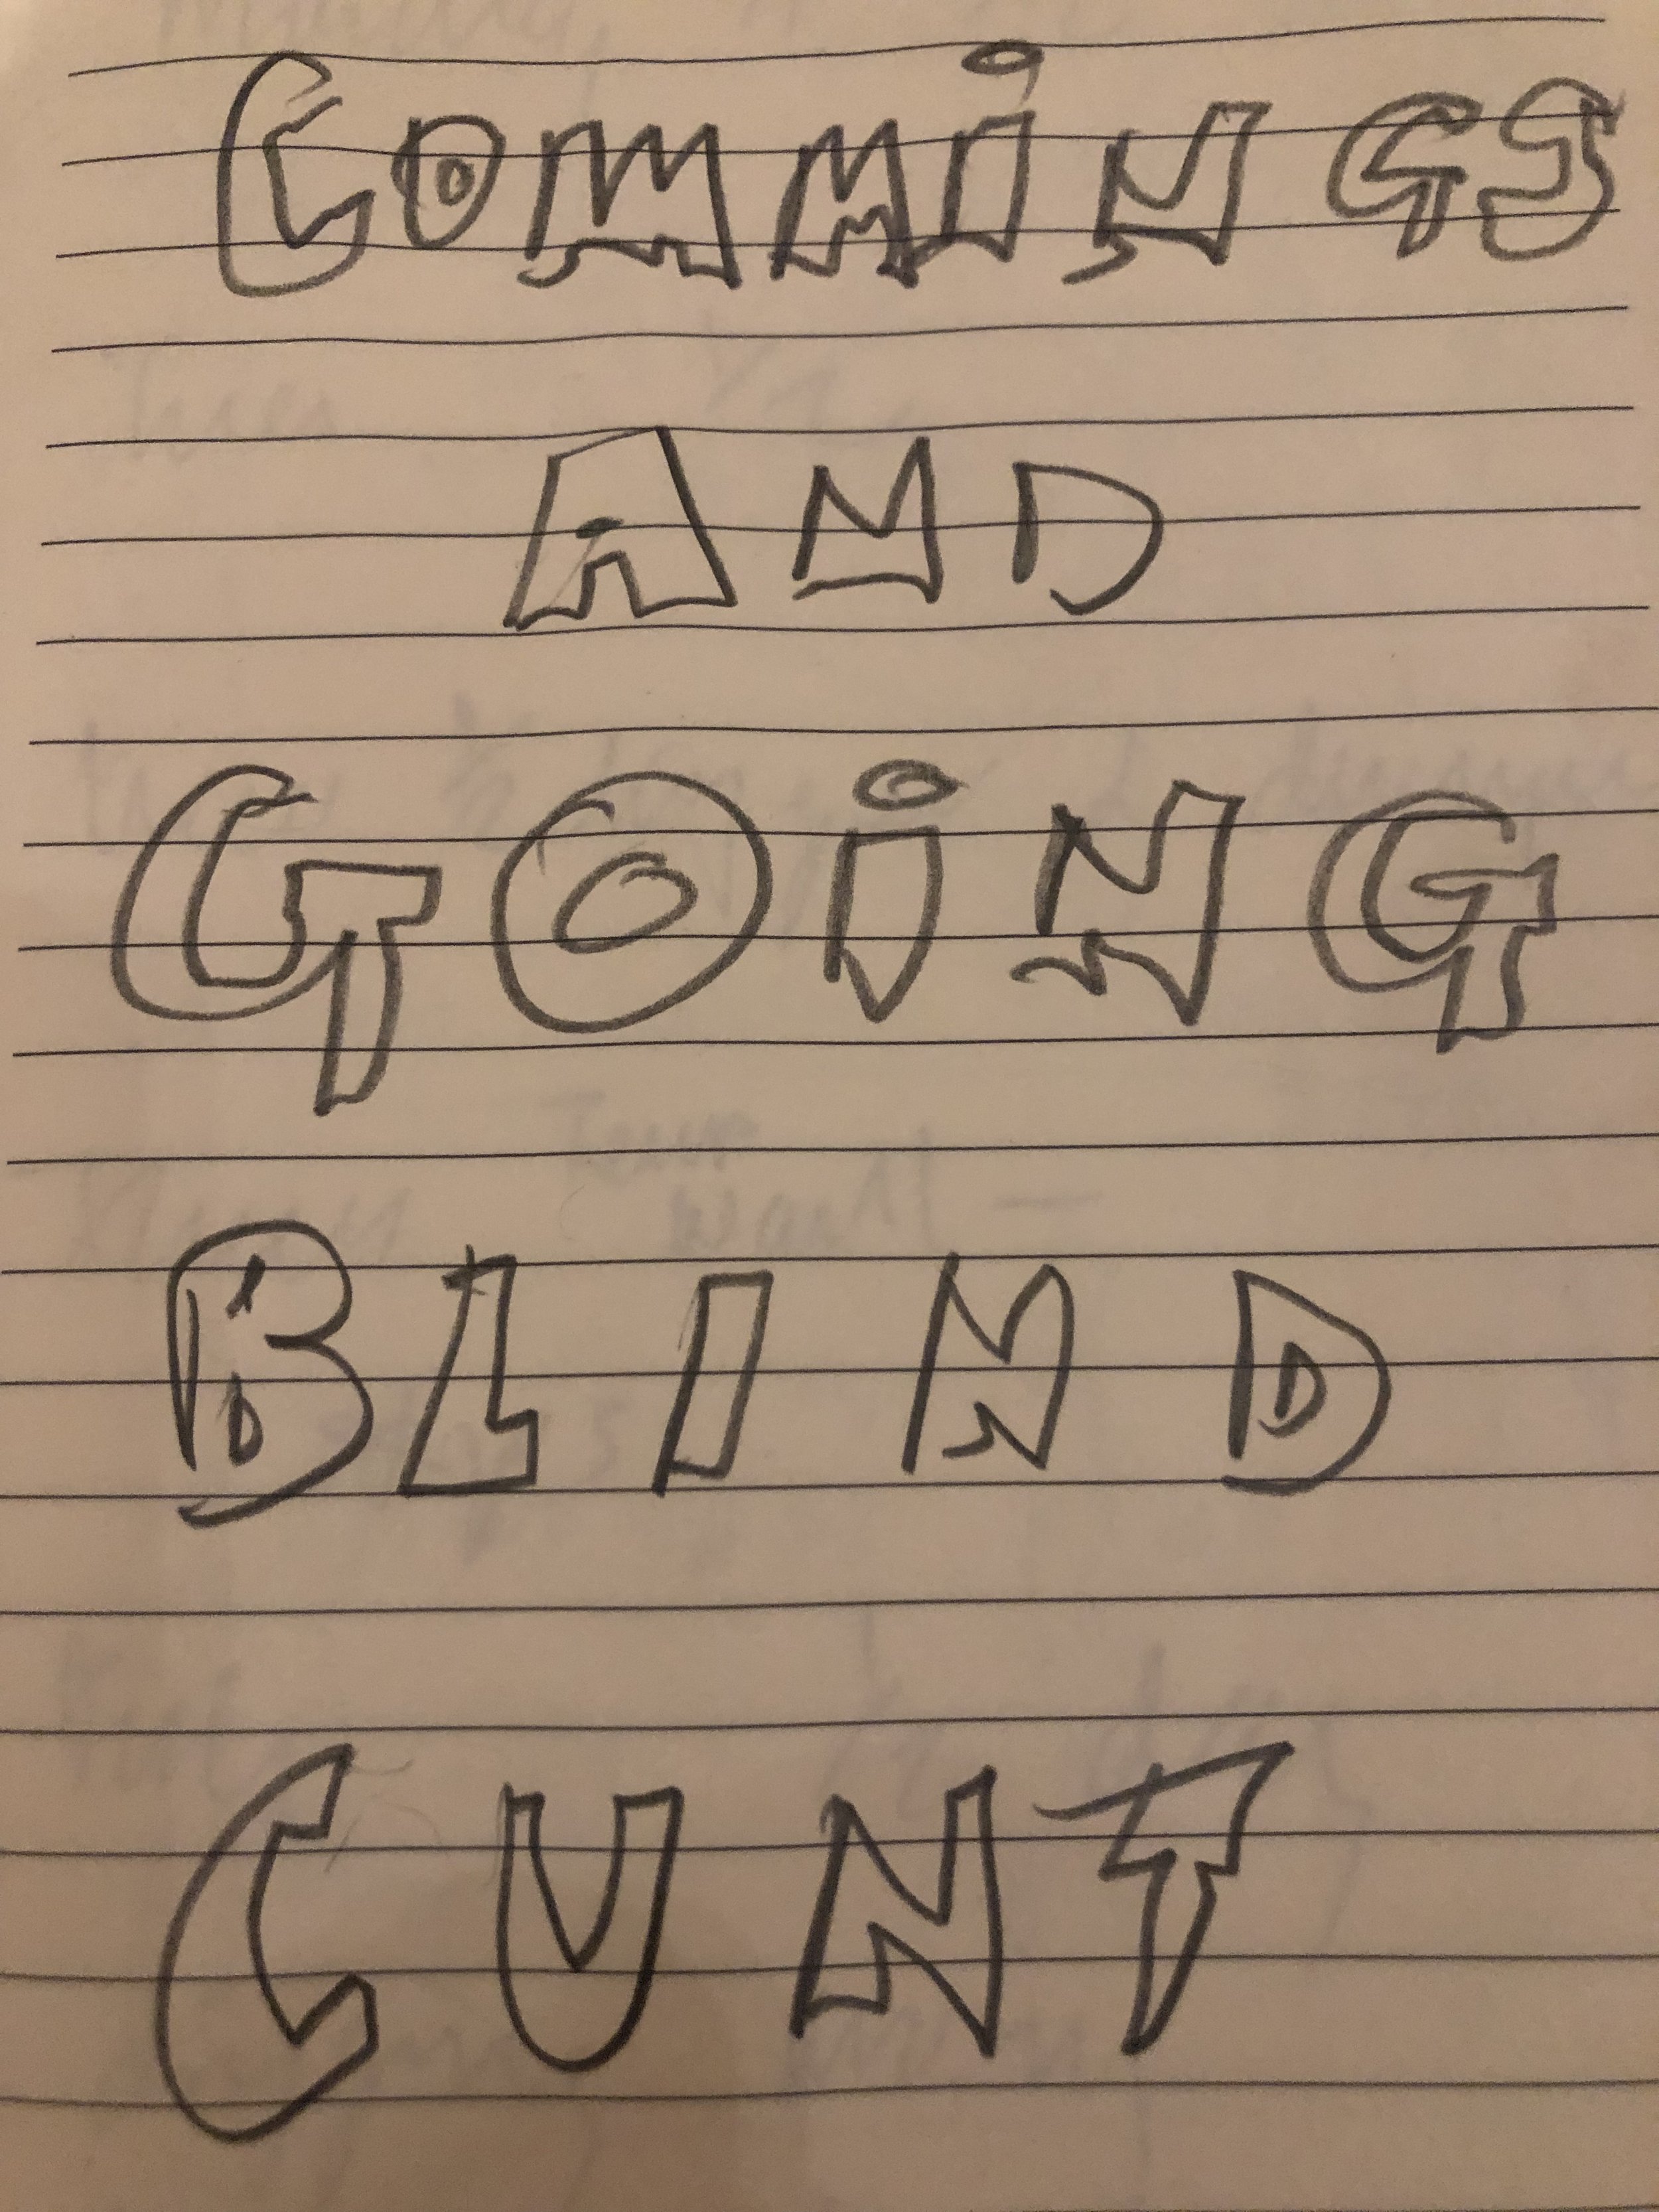 COMMiNGS
AND
GOiNG
BLIND
CUNT